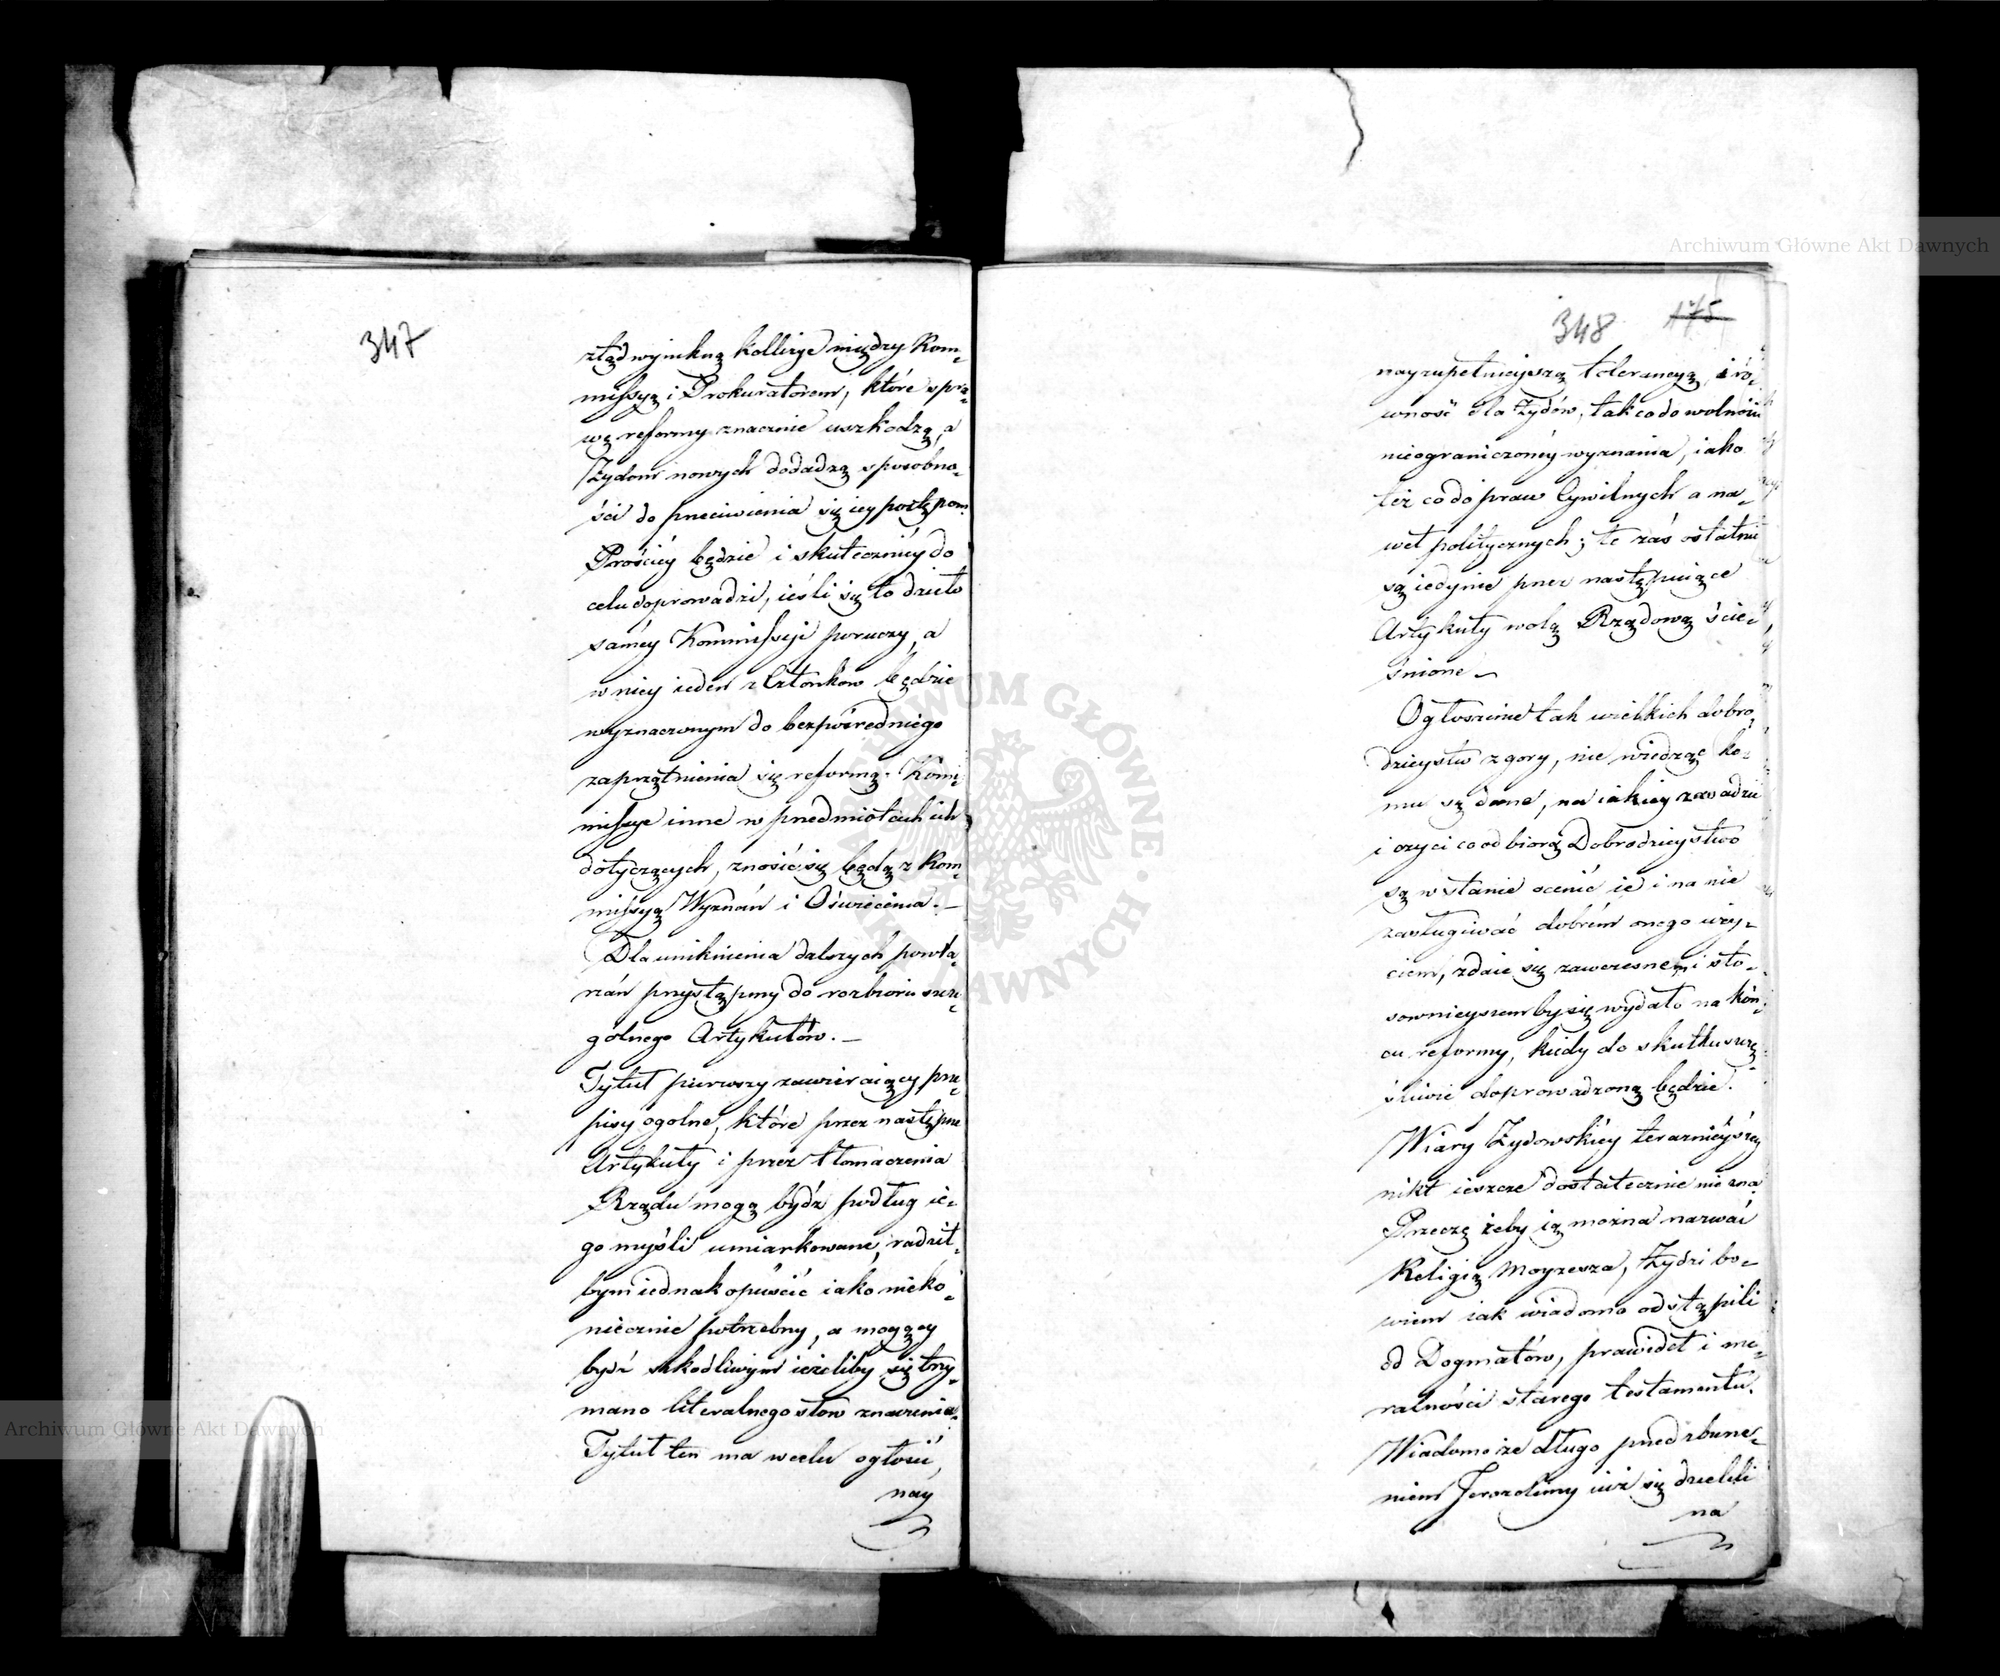 347
ztąd wynikną kollizye między Kom=
missyą i Prokuratorem, które spra=
wę reformy znacznie uszkodzą, a
Żydom nowych dodadzą sposobno=
ści do przeciwienia się iey postępom.
Prościey będzie i skuteczniey do
celu doprowadzi, ieśli się to dzieło
samey Kommissyi poruczy, a
w niey ieden z Członków będzie
wyznaczonym do bezpośredniego
zaprzątnienia się reformą. Kom=
missye inne w przedmiotach ich
dotyczących, znosić się będą z Kom=
missyą Wyznań i Oświecenia. –
Dla uniknienia dalszych powta=
rzań przystąpmy do rozbioru szcze=
gólnego Artykułów. –
Tytuł pierwszy zawieraiący prze=
pisy ogolne, które przez następne
Artykuły i przez tłomaczenia
Rządu mogą bydź podług ie=
go myśli umiarkowane, radził=
bym iednak opuścić iako nieko=
niecznie potrzebny, a mogący
bydź szkodliwym ieżeliby się trzy=
mano literalnego słow znaczenia.
Tytuł ten ma w celu ogłosić,
nay
348 175
nayzupełnieyszą tolerancyą, i ró=
wność dla Żydów, tak co do wolności
nieograniczoney wyznania, iako
też co do praw Cywilnych a na=
wet politycznych; te zaś ostatnie
są iedynie przez następuiące
Artykuły wolą Rządową ście=
śnione –
Ogłoszenie tak wielkich dobro=
dzieystw z gory, nie wiedząc ko=
mu są dane, na iakiey zasadzie
i czy ci co odbiorą Dobrodzieystwo
są w stanie ocenić ie i na nie
zasługiwać dobrém onego uży=
ciem, zdaie się zawczesnem i sto=
sownieyszem by się wydało na koń=
cu reformy, kiedy do skutku szczę=
śliwie doprowadzoną będzie.
Wiary Żydowskiey teraznieyszey
nikt ieszcze dostatecznie nie zna.
Przeczę żeby ią można nazwać
Religią Moyzesza, Żydzi bo=
wiem iak wiadomo odstąpili
od Dogmatów, prawideł i mo=
ralności starego testamentu.
Wiadomo że długo przed zburze=
niem Jerozolimy iuż się dzielili
na
Archiwum Główne Akt Dawnych
Archiwum Główne Akt Dawnych
ARCHIWUM GŁÓWNE AKT DAWNYCH